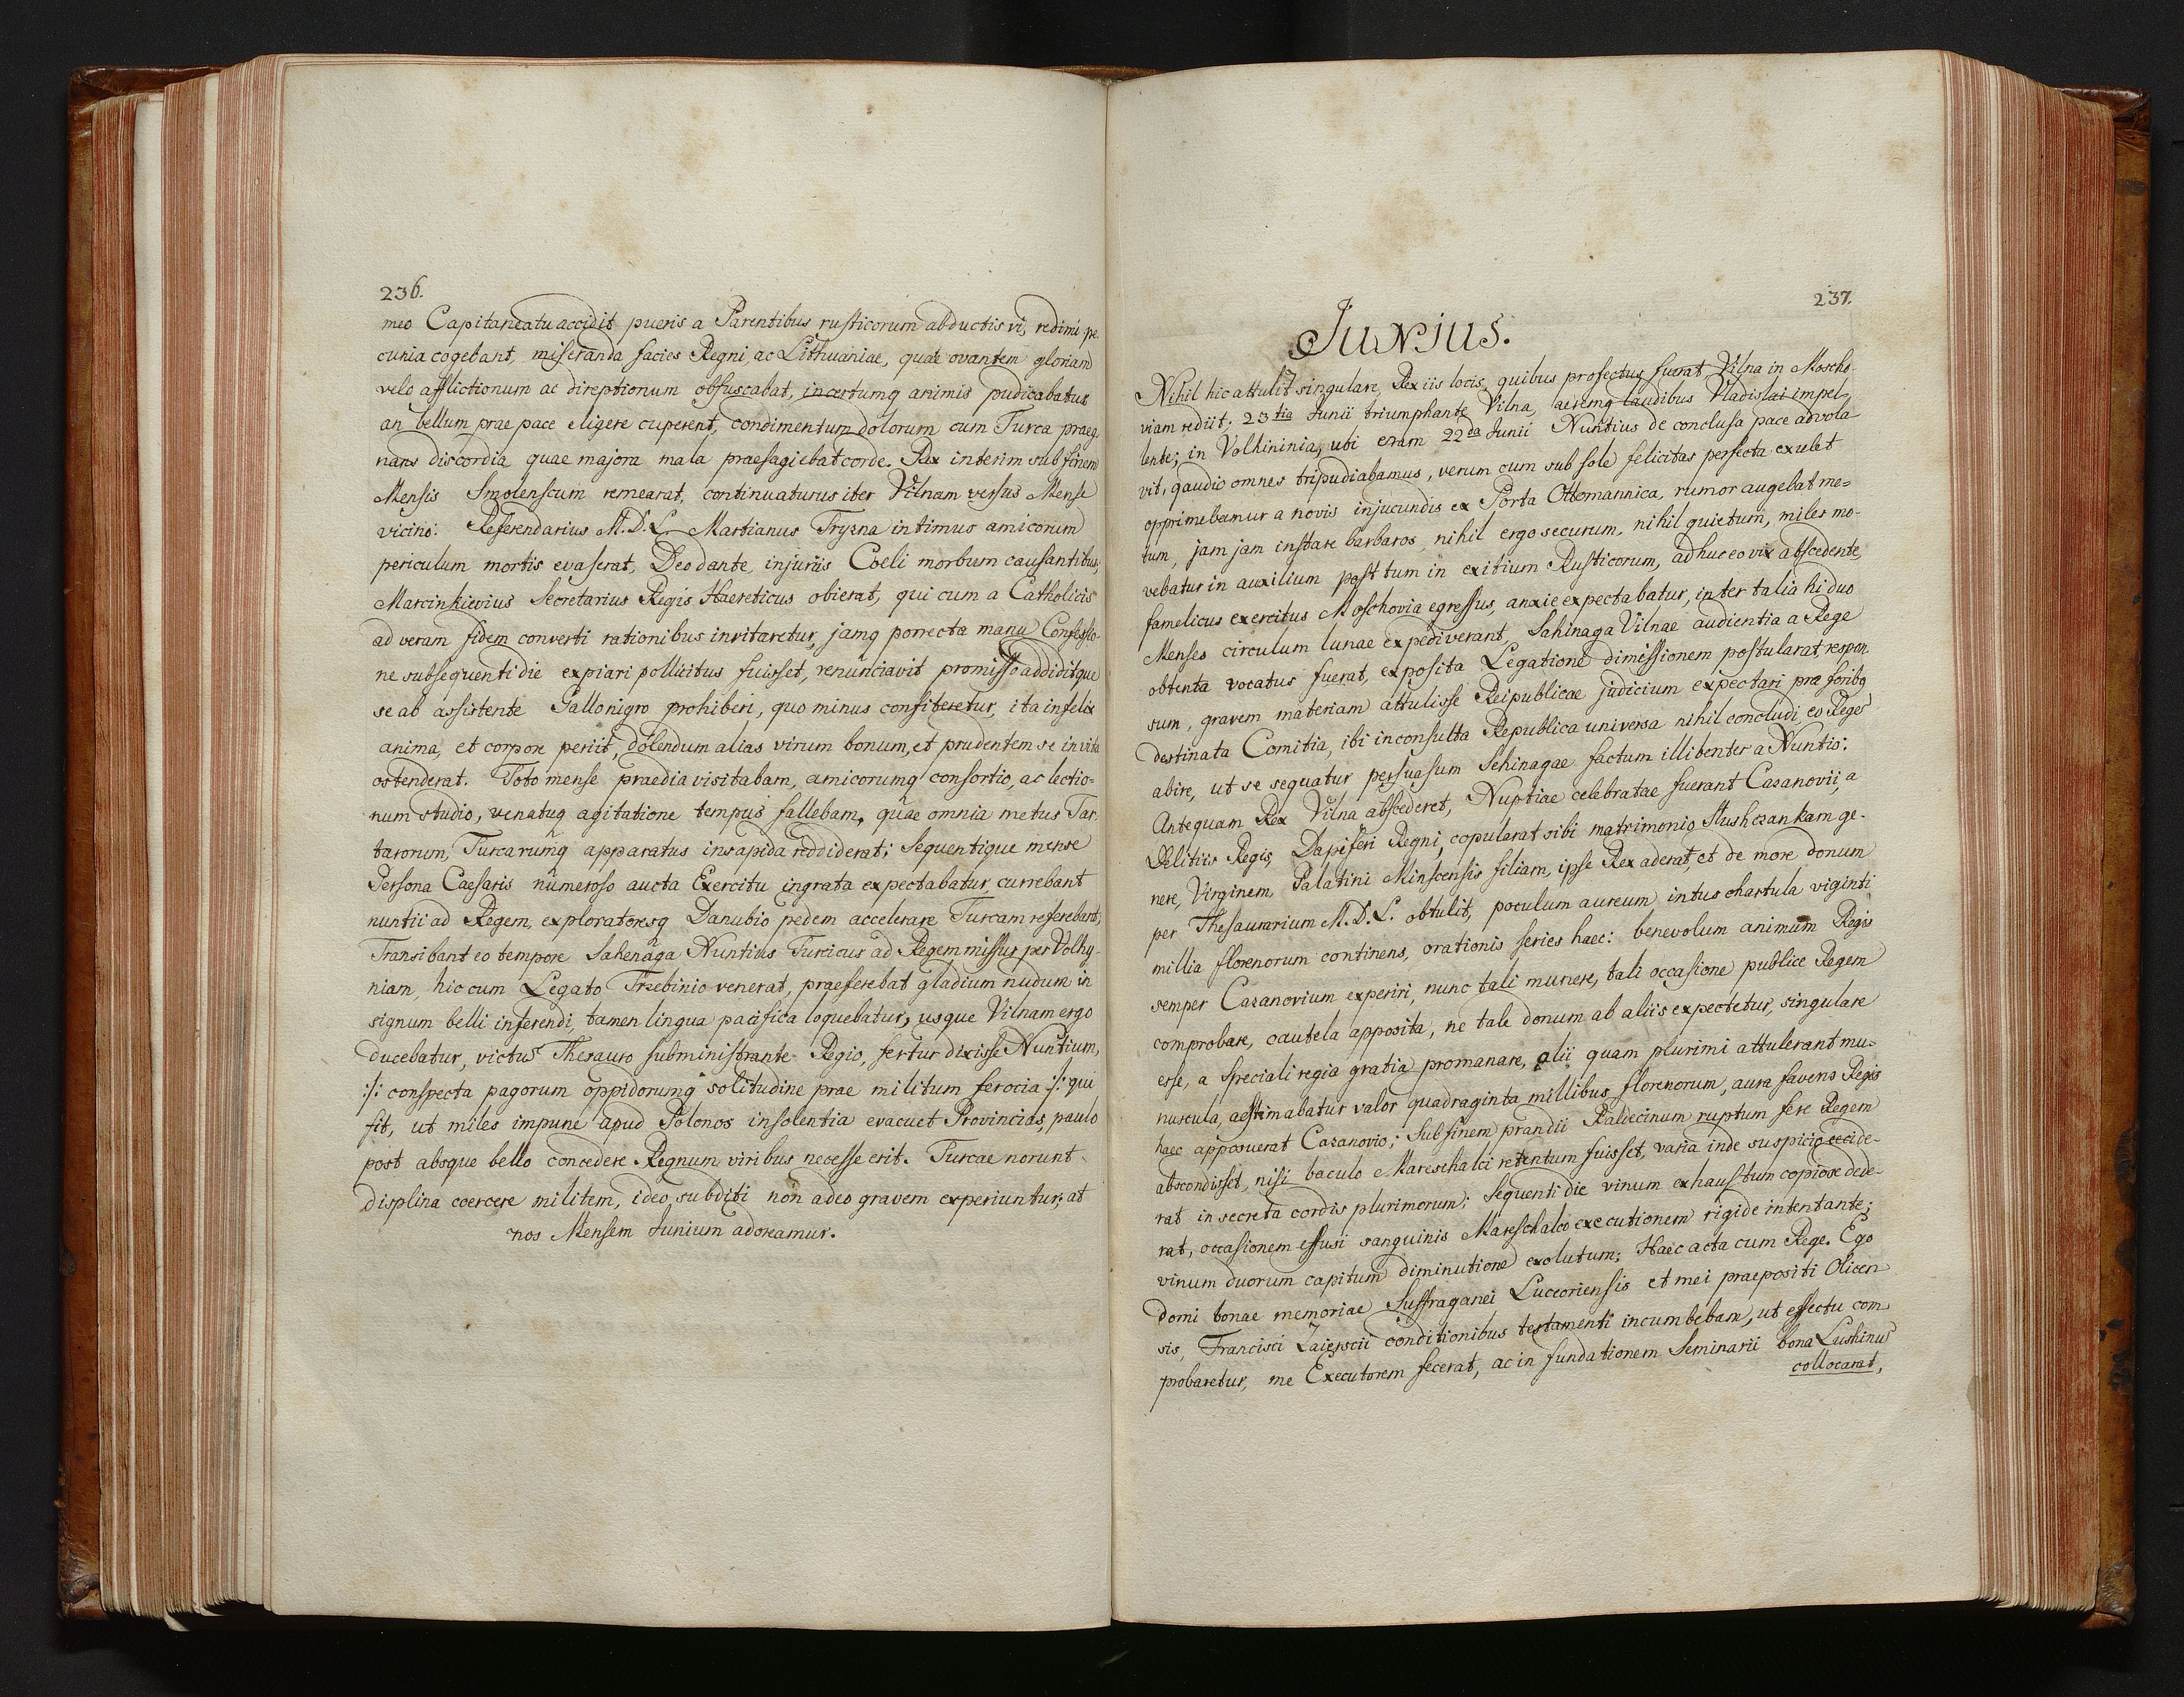 236.
meo Capitaneatu accidit pueris a Parentibus rusticorum abductis vi, redimi pe
cunia cogebant, miseranda facies Regni, ac Lithuaniae, quae ovantem gloriam
velo afflictionum ac direptionum obfuscabat, incertumq animis pudicabatur
an bellum prae pace eligere cuperent, condimentum dolorum cum Turca praeg
nans discordia quae majora mala praesagiebat corde. Rex interim sub finem
Mensis Smolenscum remearat, continuaturus iter Vilnam versus Mense
vicino: Referendarius M.D.L. Martianus Tryzna intimus amicorum
periculum mortis evaserat, Deo dante, injuriis Coeli morbum causantibus,
Marcinkievius Secretarius Regis Haereticus obierat, qui cum a Catholicis
ad veram fidem converti rationibus invitaretur, jamq porrecta manu Confessio-
ne subsequenti die expiari pollicitus fuisset, renunciavit promisso addiditque
se ab assistente Gallonigro prohiberi, quo minus confiteretur, ita infelix
anima, et corpore periit, dolendum alias virum bonum, et prudentem se in vita
ostenderat. Toto mense praedia visitabam, amicorumq consortio, ac lectio-
num studio, venatuq agitatione tempus fallebam, quae omnia metus Tar
tarorum, Turcarumq apparatus insapida reddiderat; Sequentique mense
Persona Caesaris numeroso aucta Exercitu ingrata expectabatur, currebant
nuntii ad Regem, exploratoresq Danubio pedem accelerare Turcam referebant,
Transibant eo tempore Sahenaga Nuntius Turcicus ad Regem missus per Volhy-
niam, hic cum Legato Trzebinio venerat, praeferebat gladium nudum in
signum belli inferendi, tamen lingua pacifica loquebatur, usque Vilnam ergo
ducebatur, victus Thesauro subministrante Regio, fertur dixisse Nuntium,
:/: conspecta pagorum oppidorumq solitudine prae militum ferocia :/: qui
fit, ut miles impune apud Polonos insolentia evacuet Provincias, paulo
post absque bello concedere Regnum viribus necesse erit. Turcae norunt
displina coercere militem, ideo subditi non adeo gravem experiuntur, at
nos Mensem Junium adoreamur.
237.
Junius.
Nihil hic attulit singulare, Rex iis locis, quibus profectus fuerat Vilna in Moscho-
viam rediit; 23tia Junii triumphante Vilna, aeremq laudibus Vladislai impel-
lente; in Volhininia, ubi eram 22da Junii Nuntius de conclusa pace advola
vit, gaudio omnes tripudiabamus, verum cum sub sole felicitas perfecta exulet
opprimebamur a novis injucundis ex Porta Ottomannica, rumor augebat me-
tum, jam jam instare barbaros, nihil ergo securum, nihil quietum, miles mo-
vebatur in auxilium post tum in exitium Rusticorum, adhuc eo vix abscedente,
famelicus exercitus Moschovia egressus, anxie expectabatur, inter talia hi duo
Menses circulum lunae expediverant, Sahinaga Vilnae audientia a Rege
obtenta vocatus fuerat, exposita Legatione dimissionem postularat, respon
sum, gravem materiam attulisse Reipublicae judicium expectari prae foribq
destinata Comitia, ibi inconsulta Republica universa nihil concludi, eo Reges
abire, ut se sequatur persuasum Sehinagae factum illibenter a Nuntio:
Antequam Rex Vilna abscederet, Nuptiae celebratae fuerant Cazanovii, a
Delitiis Regis, Dapiferi Regni, copularat sibi matrimonio Slushczankam ge-
nere, Virginem, Palatini Minscensis filiam, ipse Rex aderat, et de more donum
per Thesaurarium M.D.L. obtulit, poculum aureum, intus chartula viginti
millia florenorum continens, orationis series haec: benevolum animum Regis
semper Cazanovium experiri, nunc tali munere, tali occasione publice Regem
comprobare, cautela apposita, ne tale donum ab aliis expectetur, singulare
esse, a speciali regia gratia promanare, alii quam plurimi attulerant mu-
nuscula, aestimabatur valor quadraginta millibus florenorum, aura favens Regis
haec apposuerat Cazanovio; Sub finem prandii Baldecinum ruptum fere Regem
abscondisset, nisi baculo Mareschalci retentum fuisset, varia inde suspicio cecide-
rat in secreta cordis plurimorum; Sequenti die vinum exhaustum copiose dede-
rat, occasionem effusi sanguinis Mareschalco executionem rigide intentante;
vinum duorum capitum diminutione exolutum; Haec acta cum Rege. Ego
domi bonae memoriae Suffraganei Luceoriensis et mei praepositi Olicen
sis, Francisci Zaierscii conditionibus testamenti incumbebam, ut effectu com
probaretur, me Executorem fecerat, ac in fundationem Seminarii bona Lushinus
collocarat,